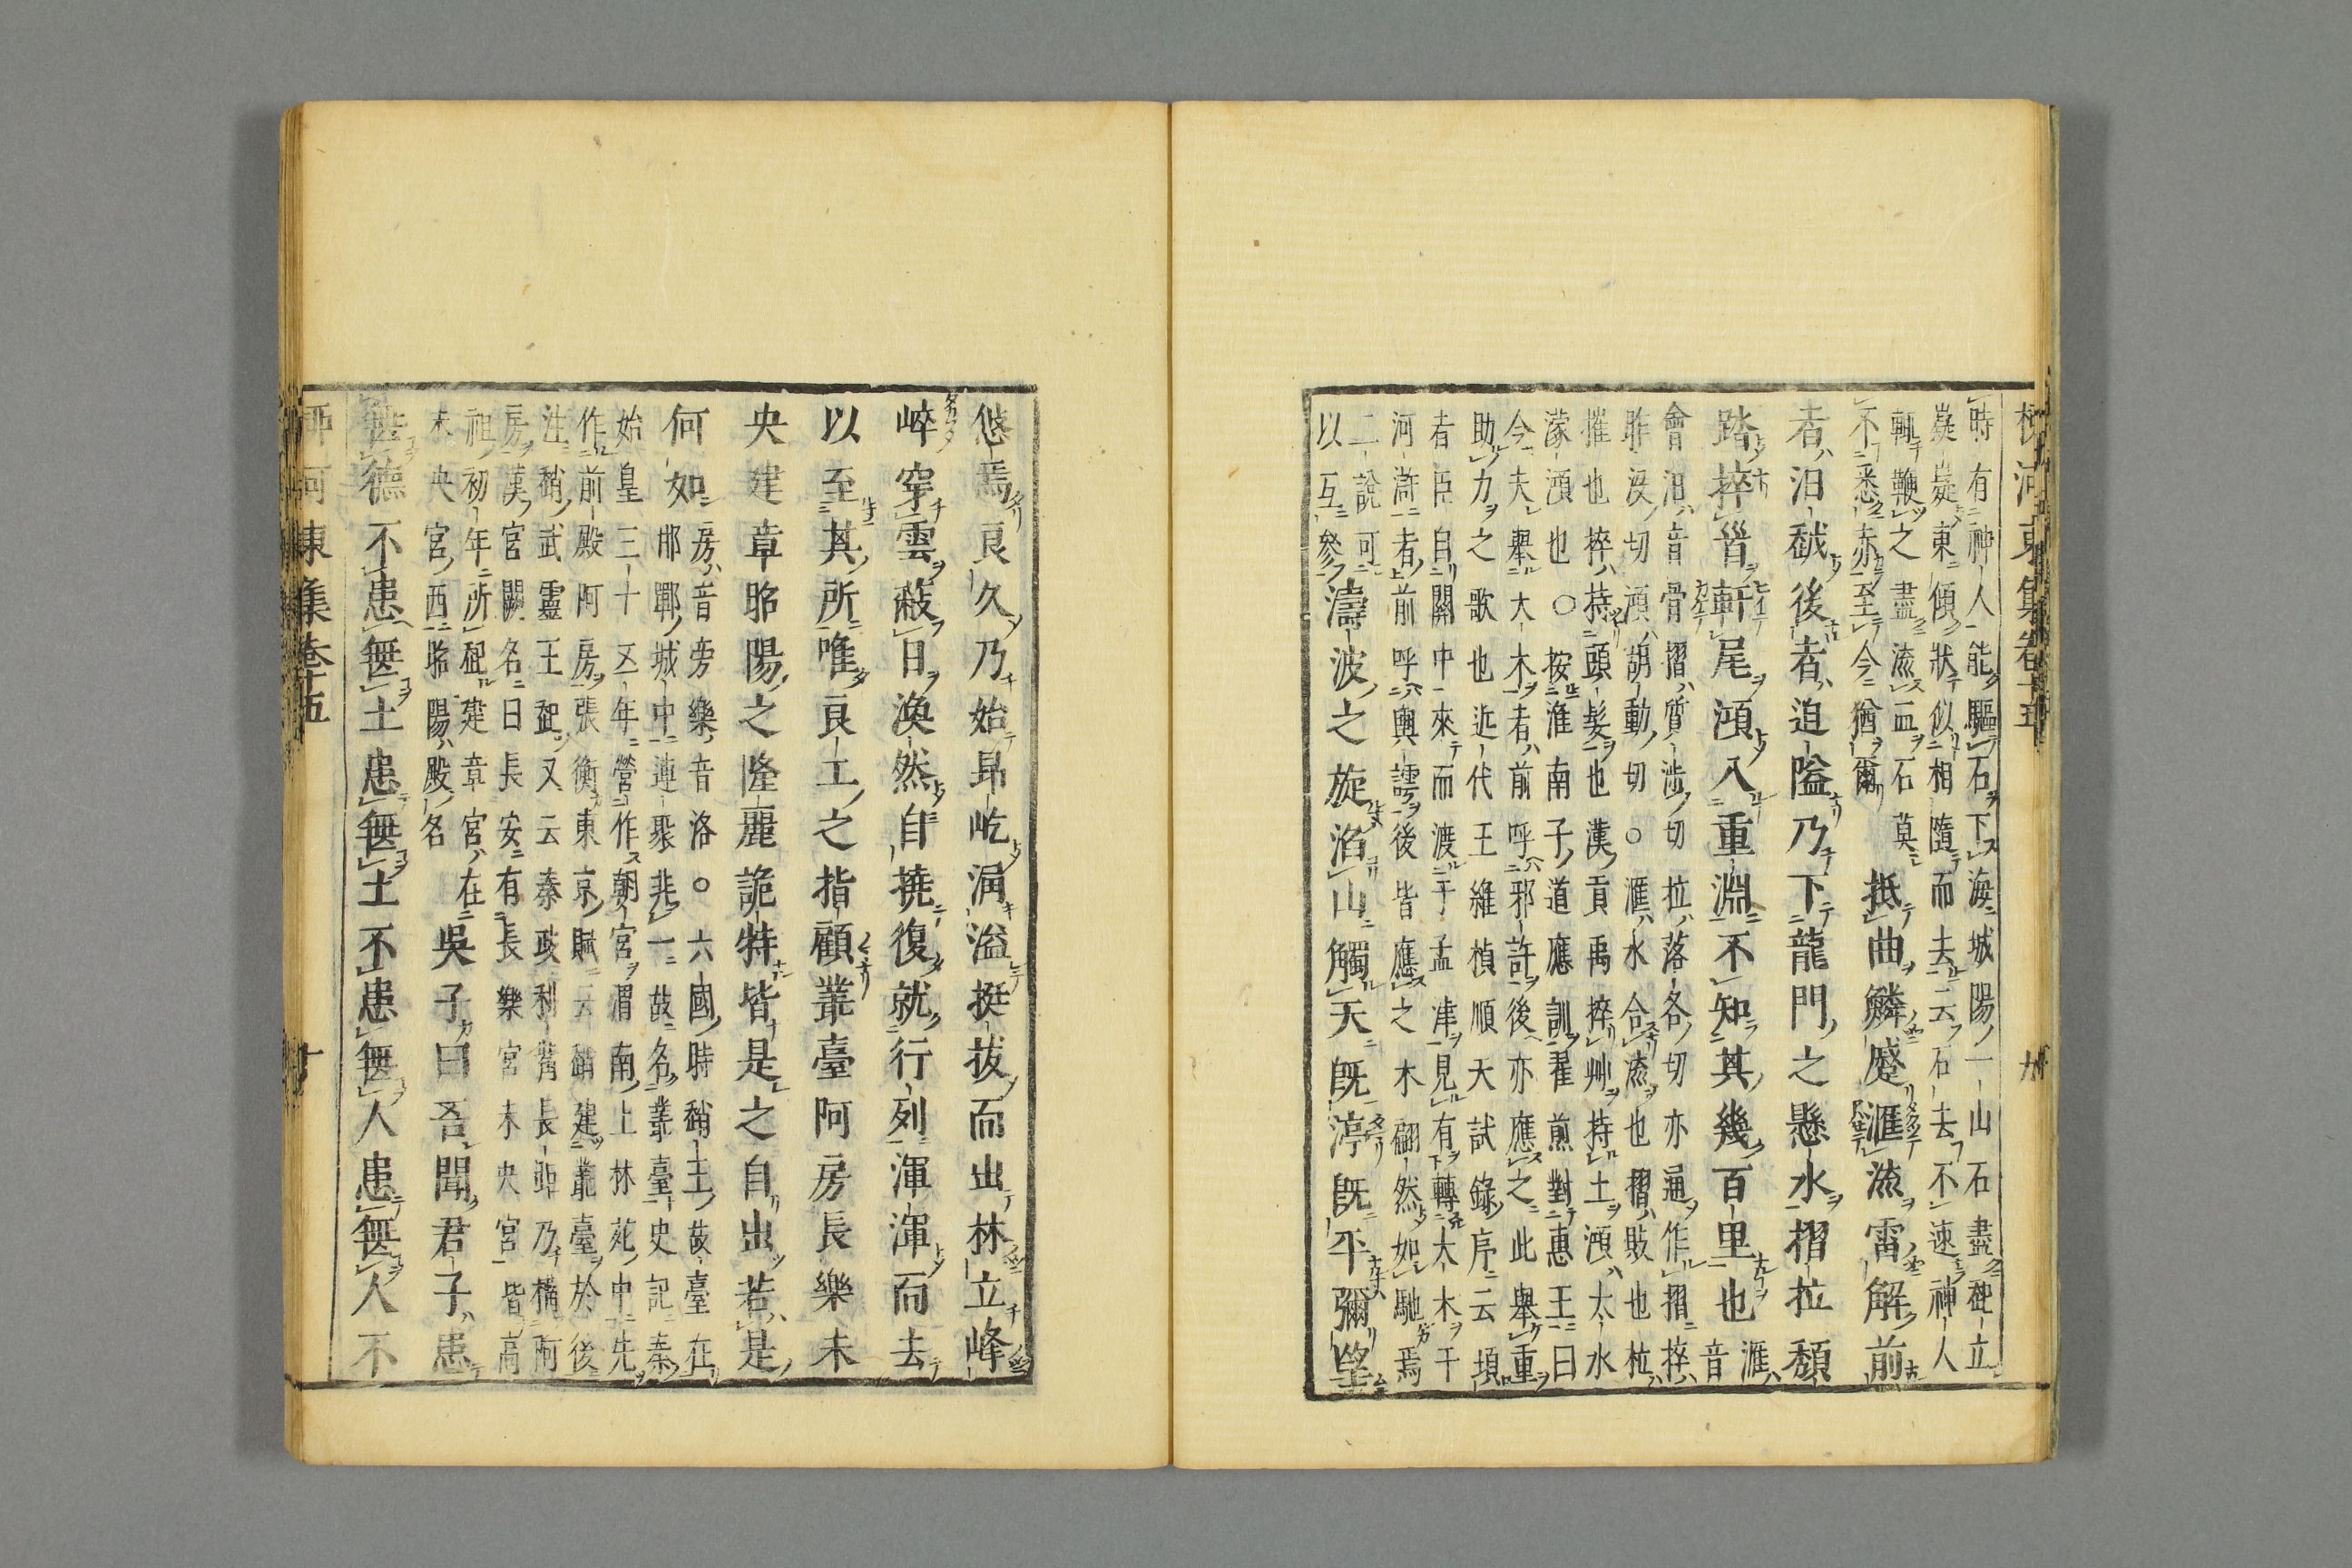 柳河東集卷十五　九
時有神人能驅石下海城陽一山石盡起立
嶷嶷東傾狀似相隨而去云石去不速神人
輒鞭之盡流血石莫
不悉赤至今猶爾
抵曲鱗蹙滙流雷解前
者汩越後者迫隘乃下龍門之懸水摺拉頹
踏捽首軒尾澒入重淵不知其幾百里也滙音
會汩音骨摺質涉切拉落各切亦通作摺捽
昨沒切澒胡動切○滙水合流也摺敗也拉
摧也捽持頭髮也漢貢禹捽艸持土澒太水
濛澒也○按淮南子道應訓翟煎對惠王曰
今夫舉大木者前呼邪許後亦應之此舉重
助力之歌也近代王維楨順天試錄序云頃
者臣自關中來而渡于孟津見有轉大木干
河滸者前呼輿謣後皆應之木翩然如馳焉
二說可
以互參
濤波之旋滔山觸天既渟既平彌望
悠焉良久乃始昂屹涌溢挺拔而出林立峰
崪穿雲蔽日渙然自撓復就行列渾渾而去
以至其所唯良工之指顧叢臺阿房長樂未
央建章昭陽之隆麗詭特皆是之自出若是
何如房音旁樂音洛○六國時趙王故臺在
邯鄲城中連聚非一故名叢臺史記秦
始皇三十五年營作朝宮渭南上林苑中先
作前殿阿房張衡東京賦云趙建叢臺於後
注趙武靈王起又云秦政利觜長距乃構阿
房漢宮闕名曰長安有長樂宮未央宮皆高
祖初年所起建章宮在
未央宮西昭陽殿名
吳子曰吾聞君子患
無德不患無土患無土不患無人患無人不
柳河東集卷十五　十